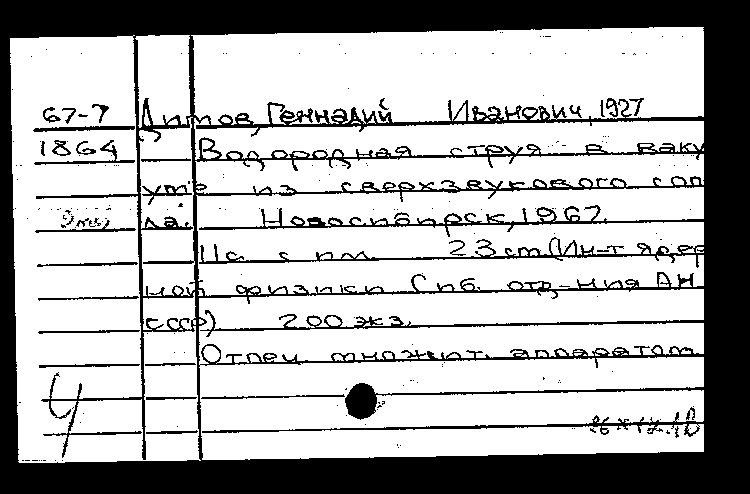 67-7 Димов, Геннадий Иванович, 1927
1864 Водородная струя в ваку
уме из сверхзвукового соп
ла. Новосибирск, 1967.
11с. с ил. 23 см (Ин-т ядер
ной физики Сиб. отд-ния АН
СССР) 200 экз.
Отпеч. множит. аппаратом